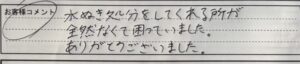 お客様コメント
水ぬき処分をしてくれる所が
全然なくて困っていました。
ありがとうございました。